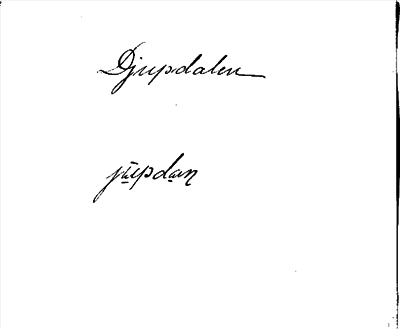 Djupdalen
ju̱̅pda̱ŋ